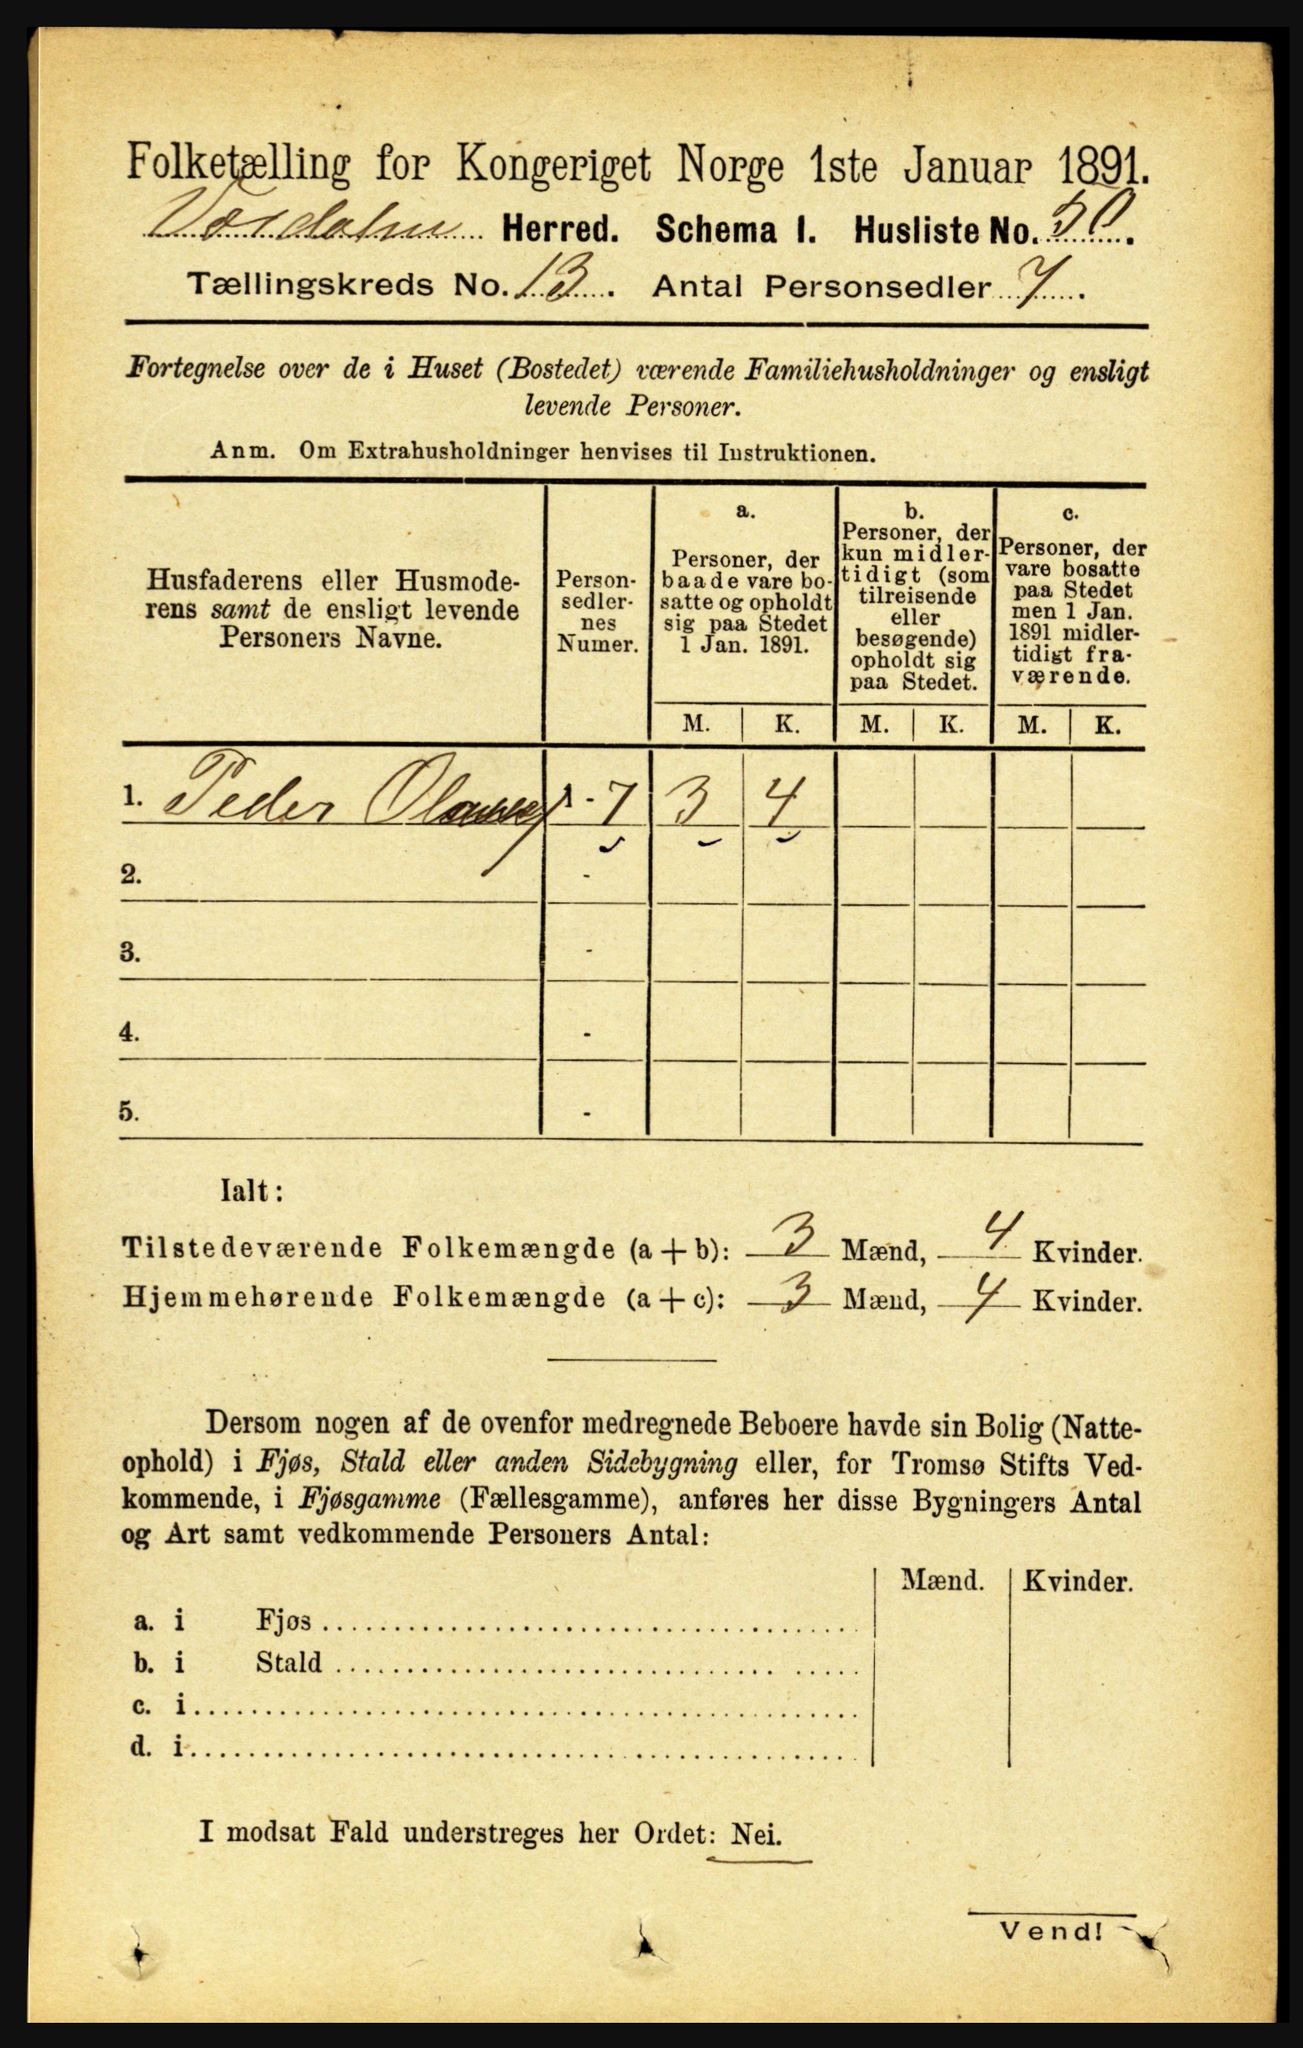 Folketælling for Kongeriget Norge 1ste Januar 1891.
Værdalen Herred. Schema I. Husliste No. 50.
Tællingskreds No. 13. Antal Personsedler 7.
Fortegnelse over de i Huset (Bostedet) værende Familiehusholdninger og ensligt
levende Personer.
Anm. Om Extrahusholdninger henvises til Instruktionen.
Husfaderens eller Husmode-
rens samt de ensligt levende
Personers Navne.
Person-
sedler-
nes
Numer.
a.
Personer, der
baade vare bo-
satte og opholdt
sig paa Stedet
1 Jan. 1891.
b.
Personer, der
kun midler-
tidigt (som
tilreisende
eller
besøgende)
opholdt sig
paa Stedet.
c.
Personer, der
vare bosatte
paa Stedet
men 1 Jan.
1891 midler-
tidigt fra-
værende.
M. K. M. K. M. K.
1. Peder 1 - 7 3 4
2. -
3. -
4. -
5. -
Ialt:
Tilstedeværende Folkemængde (a + b): 3 Mænd, 4 Kvinder.
Hjemmehørende Folkemængde (a + c): 3 Mænd, 4 Kvinder.
Dersom nogen af de ovenfor medregnede Beboere havde sin Bolig (Natte-
ophold) i Fjøs, Stald eller anden Sidebygning eller, for Tromsø Stifts Ved-
kommende, i Fjøsgamme (Fællesgamme), anføres her disse Bygningers Antal
og Art samt vedkommende Personers Antal:
Mænd. Kvinder.
a. i Fjøs
b. i Stald
c. i
d. i
I modsat Fald understreges her Ordet: Nei.
Vend!